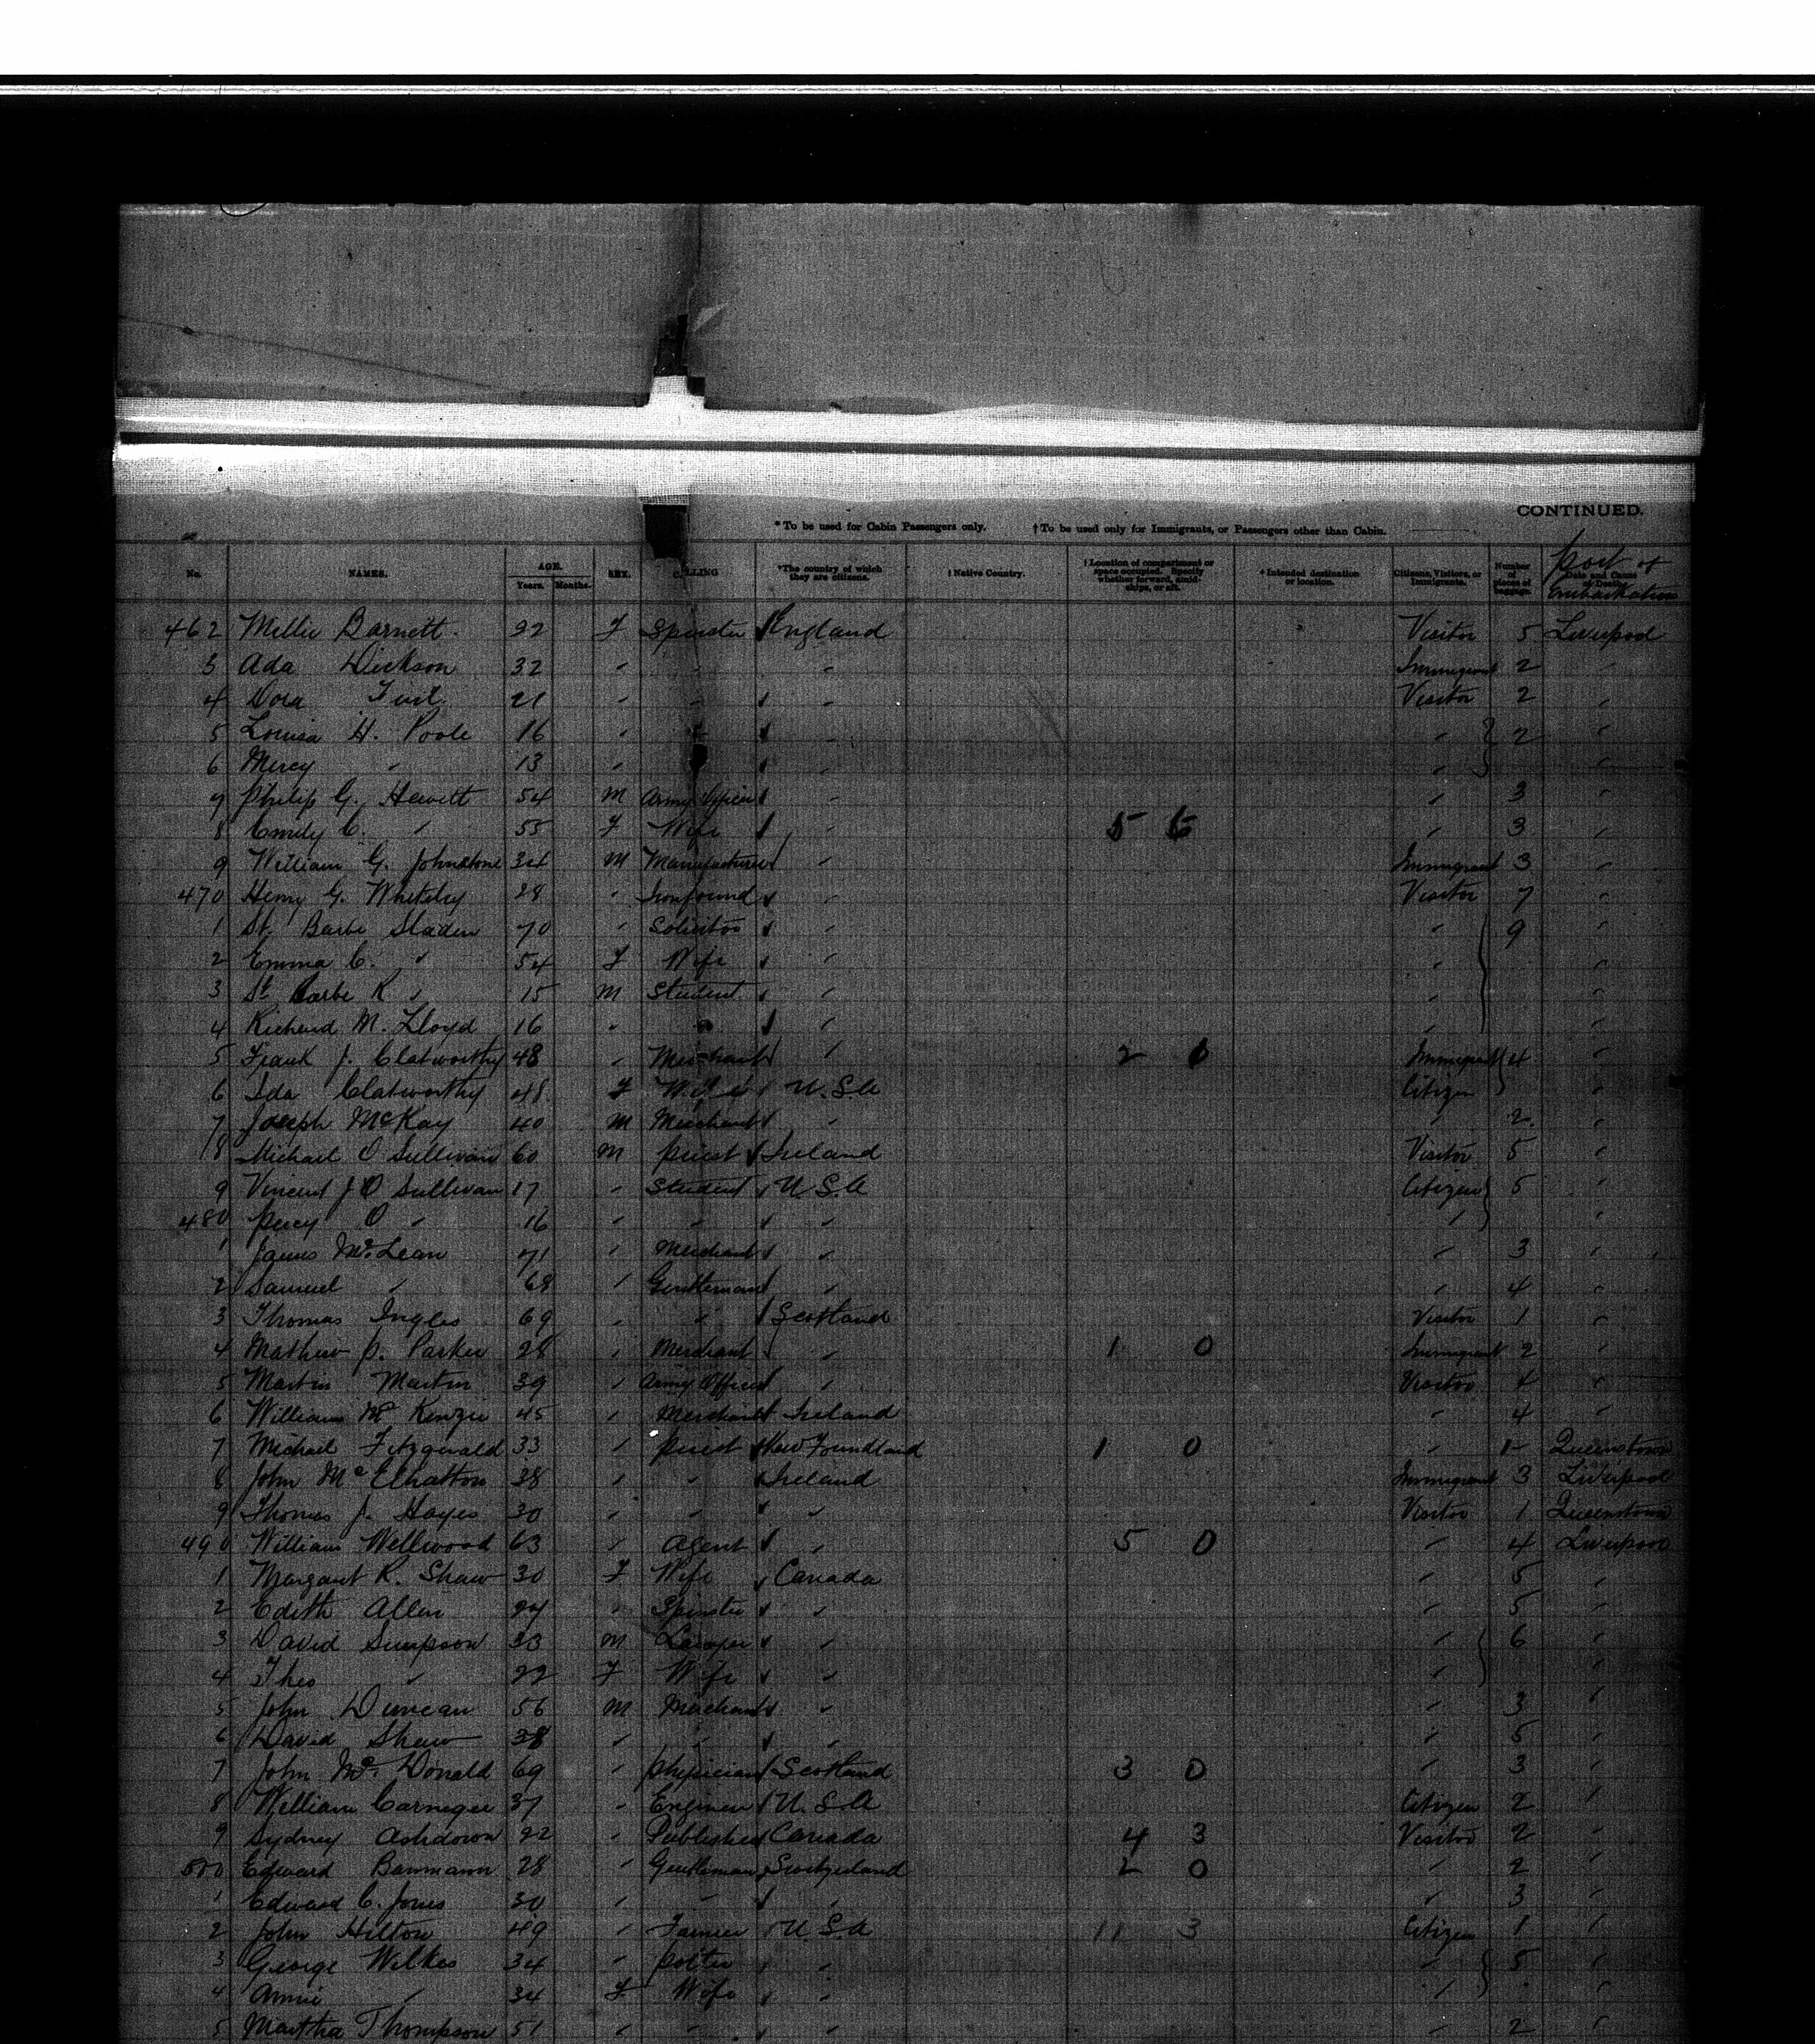 CONTINUED.
* To be used for Cabin Passengers only. † To be used only for Immigrants, or Passengers other than Cabin.
No. NAMES. AGE. Years. Months. SEX. CALLING *The country of which they are citizens. †Native Country. †Location of compartment or space occupied. Specify whether forward, amidships, or aft. †Intended destination or location. Citizens, Visitors, or Immigrants. Number of pieces of baggage. Date and Cause of Death. Port of Embarkation
462 Millie Barnett. 22 F Spinster England Visitor 5 Liverpool
3 Ada Dickson 32 " " " Immigrant 2 "
4 Dora 21 " " " Visitor 2 "
5 Louisa H. Poole 16 " " " " 2 "
6 Mercy " 13 " " " "
7 Philip G. Hewitt 54 M Army Officer " " 3 "
8 Emily C. " 55 F Wife " 5 6 " 3 "
9 William G. Johnstone 34 M Manufacturer " Immigrant 3 "
470 Henry G. Whiteley 28 " Ironfound " Visitor 7 "
1 St. Barbe Sladen 70 " Solicitor " " 9 "
2 Emma C. " 54 F Wife " " "
3 St Barbe K " 15 M Student " " "
4 Richard M. Lloyd 16 " " " " "
5 Frank J. Clatworthy 48 " Merchant " 2 0 Immigrant 4 "
6 Ida Clatworthy 48 F Wife U.S.A Citizen "
7 Joseph McKay 40 M Merchant " " 2 "
8 Michael O Sullivan 60 M Priest Ireland Visitor 5 "
9 Vincent J O Sullivan 17 " Student U.S.A Citizen 5 "
480 Percy O " 16 " " " " "
1 James McLean 71 " Merchant " " 3 "
2 Samuel " 68 " Gentleman " " 4 "
3 Thomas Ingles 69 " " Scotland Visitor 1 "
4 Mathew P. Parker 28 " Merchant " 1 0 Immigrant 2 "
5 Martin Martin 39 " Army Officer " Visitor 4 "
6 William McKenzie 45 " Merchant Ireland " 4 "
7 Michael Fitzgerald 33 " Priest New Foundland 1 0 " 1 Queenstown
8 John McElhatton 38 " " Ireland Immigrant 3 Liverpool
9 Thomas J. Hayes 30 " " " Visitor 1 Queenstown
490 William Wellwood 63 " Agent " 5 0 " 4 Liverpool
1 Margaret R. Shaw 30 F Wife Canada " 5 "
2 Edith Allen 24 " Spinster " " 5 "
3 David Simpson 33 M " " 6 "
4 Theo " 22 F Wife " " "
5 John Duncan 56 M Merchant " " 3 "
6 David Shaw 38 " " " " 5 "
7 John McDonald 69 " Physician Scotland 3 0 " 3 "
8 William Carnegee 37 " Engineer U.S.A Citizen 2 "
9 Sydney Ashdown 22 " Publisher Canada 4 3 Visitor 2 "
500 Edward Baumann 28 " Gentleman Switzerland 2 0 " 2 "
1 Edward C. Jones 30 " " " " 3 "
2 John Hilton 49 " Farmer U.S.A 11 3 Citizen 1 "
3 George Wilkes 34 " Potter " " 5 "
4 Annie " 34 F Wife " " "
5 Martha Thompson 51 " " " " 2 "